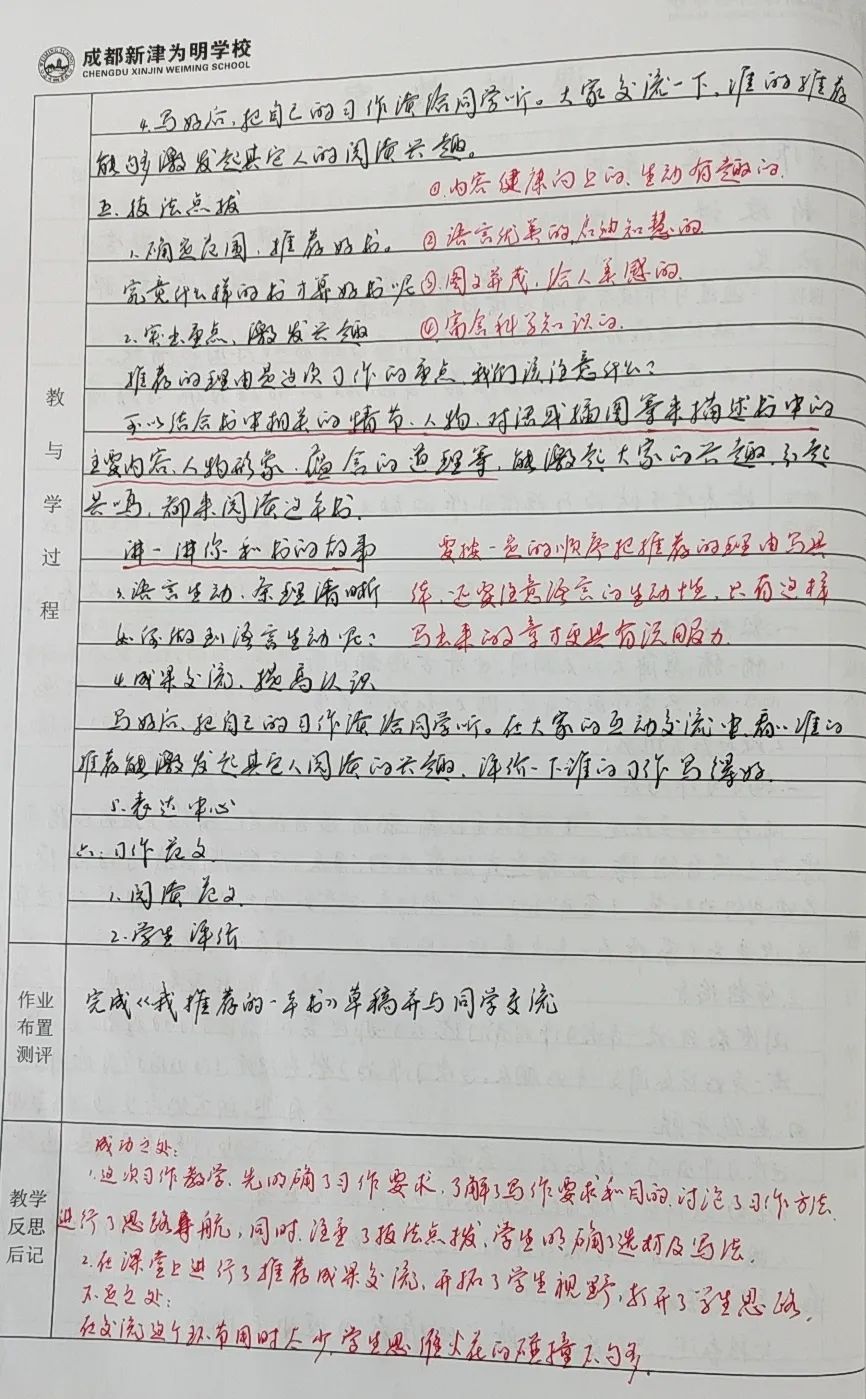 成都新津为明学校
CHENGDU XINJIN WEIMING SCHOOL
教与学过程
4.写好后,把自己的习作读给同学听。大家交流一下,谁的推荐
能够激发起其它人的阅读兴趣。
五.技法点拔
①.内容健康向上的、生动有趣的.
1.确定范围,推荐好书。
②语言优美的,启迪智慧的
究竟什么样的书才算好书呢
③.图文并茂,给人美感的.
2.突出重点,激发兴趣
④.富含科学知识的.
推荐的理由是这次习作的重点,我们该注意什么?
可以结合书中相关的情节、人物、对话或插图等来描述书中的
主要内容、人物形象、蕴含的道理等,能激起大家的兴趣,引起
共鸣,都来阅读这本书.
讲一讲你和书的故事
要按一定的顺序把推荐的理由写具
3.语言生动,条理清晰
体,还要注意语言的生动性,只有这样
如何做到语言生动呢?
写出来的文章才更具有说服力.
4.成果交流,提高认识
写好后,把自己的习作读给同学听。在大家的互动交流中,看谁的
推荐能激发起其它人阅读的兴趣,评价一下谁的习作写得好.
5.表达中心
六.习作范文
1.阅读范文
2.学生评价
作业布置测评
完成《我推荐的一本书》草稿并与同学交流
教学反思后记
成功之处:
1.这次习作教学,先明确了习作要求,了解了写作要求和目的,讨论了习作方法.
进行了思路导航,同时,注重了技法点拨,学生明确了选材及写法.
2.在课堂上进行了推荐成果交流,开拓了学生视野,打开了学生思路.
不足之处:
在交流这个环节用时太少,学生思维火花的碰撞不够多.